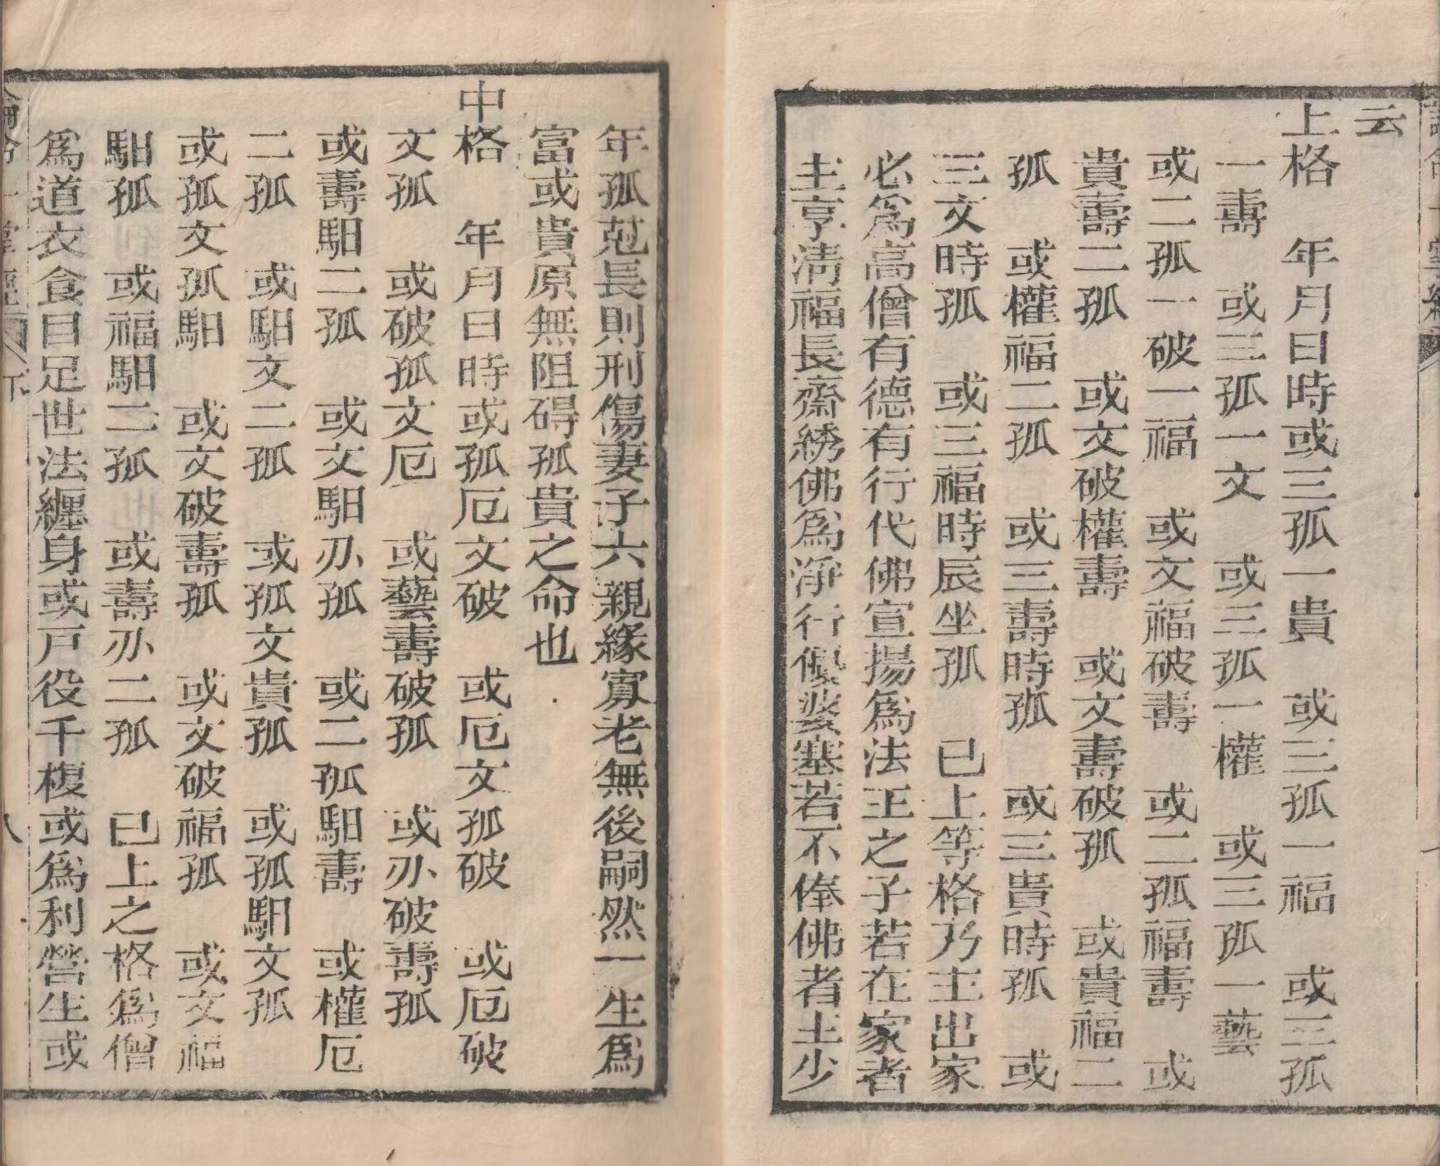 云
上格　年月日時或三孤一貴　或三孤一福　或三孤
一壽　或三孤一文　或三孤一權　或三孤一藝
或二孤一破一福　或文福破壽　或二孤福壽　或
貴壽二孤　或文破權壽　或文壽破孤　或貴福二
孤　或權福二孤　或三壽時孤　或三貴時孤　或
三文時孤　或三福時辰坐孤　已上等格乃主出家
必爲高僧有德有行代佛宣揚爲法王之子若在家者
主亨淸福長齋綉佛爲淨行優婆塞若不俸佛者主少
年孤尅長則刑傷妻子六親緣寡老無後嗣然一生爲
富或貴原無阻碍孤貴之命也
中格　年月日時或孤厄文破　或厄文孤破　或厄破
文孤　或破孤文厄　或藝壽破孤　或刃破壽孤
或壽馹二孤　或文馹刃孤　或二孤馹壽　或權厄
二孤　或馹文二孤　或孤文貴孤　或孤馹文孤
或孤文孤馹　或文破壽孤　或文破福孤　或文福
馹孤　或福馹二孤　或壽刃二孤　已上之格爲僧
爲道衣食目足世法纏身或戸役千複或爲利營生或